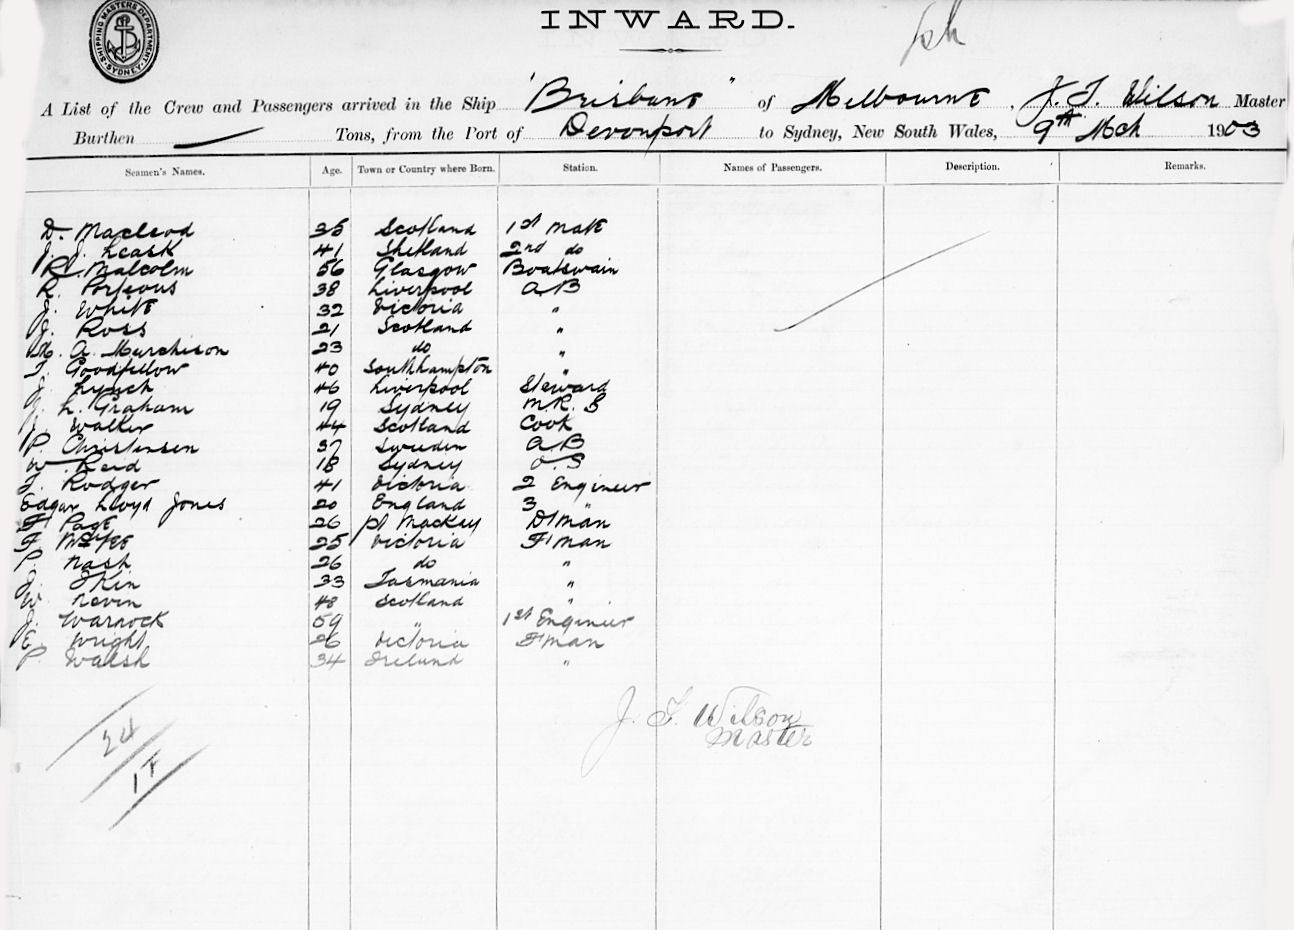 SHIPPING MASTERS DEPARTMENT
SYDNEY
INWARD.
A List of the Crew and Passengers arrived in the Ship "Brisbane" of Melbourne, J. F. Wilson Master
Burthen Tons, from the Port of Devonport to Sydney, New South Wales, 9th Mch 1903
Seamen's Names. Age. Town or Country where Born. Station. Names of Passengers. Description. Remarks.
D. Macleod 35 Scotland 1st Mate
J. J. Leask 41 Shetland 2nd do
Malcolm 56 Glasgow Boatswain
R. Porteous 38 Liverpool AB
J. White 32 Victoria "
J. Ross 21 Scotland "
M. A. Murchison 23 do "
T. Goodfellow 40 Southhampton "
J. Lynch 46 Liverpool Steward
J. L. Graham 19 Sydney M.R.S
J. Walker 44 Scotland Cook
P. Christensen 37 Sweden AB
W. Reid 18 Sydney O.S
T. Rodger 41 Victoria 2 Engineer
Edgar Lloyd Jones 20 England 3 "
F Page 26 pt Mackey D'man
F McFee 25 Victoria F'man
P. Nash 26 do "
J. Skin 33 Tasmania "
W. Nevin 48 Scotland "
J. Warnock 59 " 1st Engineer
E. Wright 26 Victoria F'man
P. Walsh 34 Ireland "
J. F. Wilson
Master
24
1F